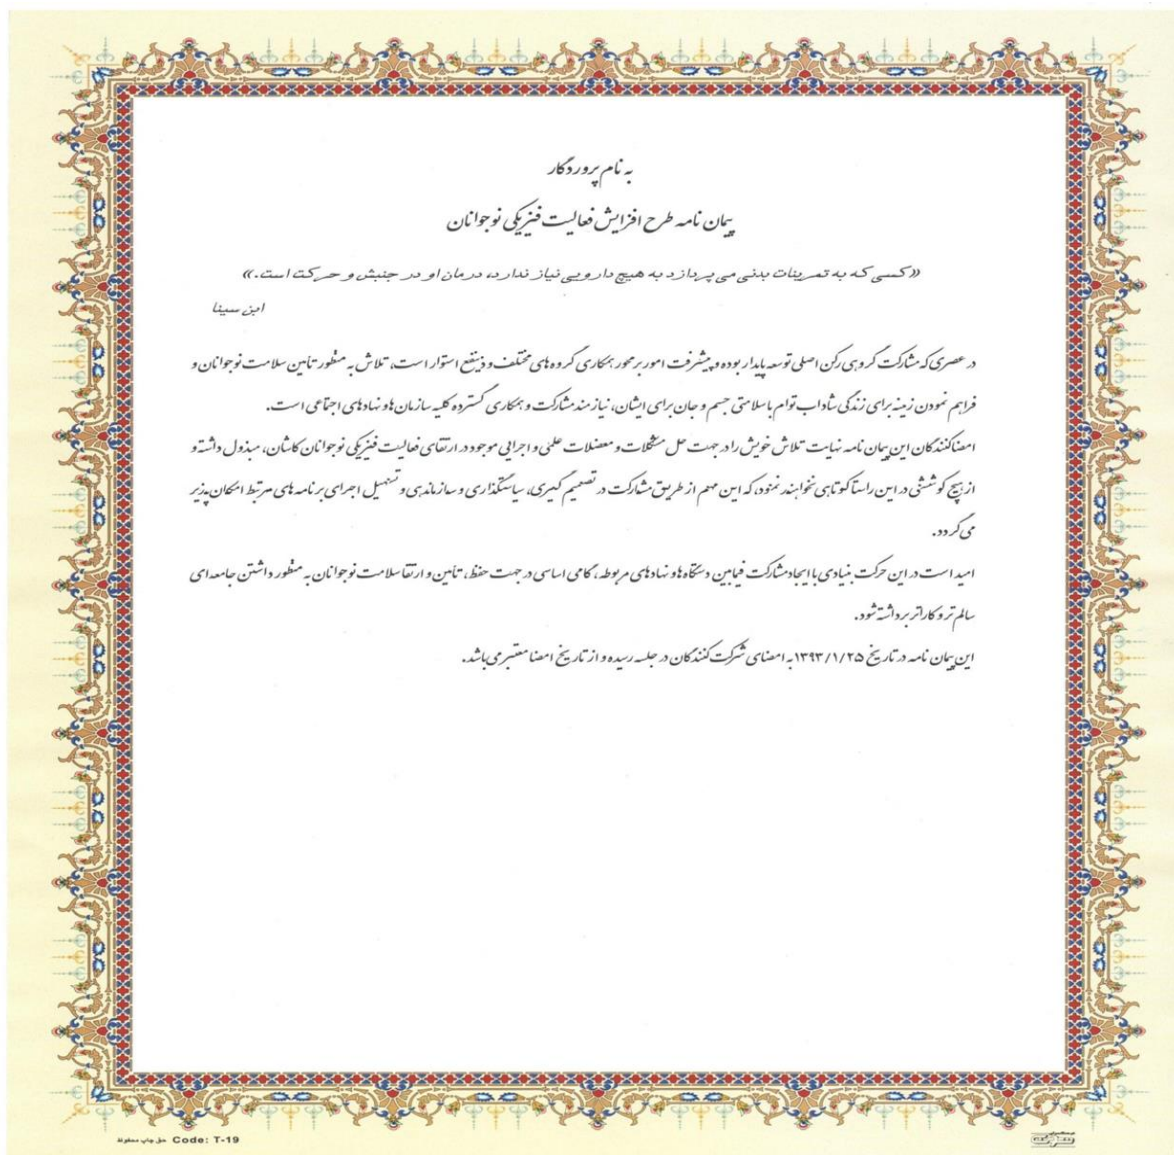 به نام پروردگار
پیمان نامه طرح افزایش فعالیت فیزیکی نوجوانان
«کسی که به تمرینات بدنی می پردازد به هیچ دارویی نیاز ندارد، درمان او در جنبش و حرکت است.»
ابن سینا
در عصری که مشارکت گروهی رکن اصلی توسعه پایدار بوده و پیشرفت امور بر محور همکاری گروه های مختلف و ذینفع استوار است، تلاش به منظور تأمین سلامت نوجوانان و
فراهم نمودن زمینه برای زندگی شاداب توام با سلامتی جسم و جان برای ایشان، نیازمند مشارکت و همکاری گسترده کلیه سازمان ها و نهادهای اجتماعی است.
امضاکنندگان این پیمان نامه نهایت تلاش خویش را در جهت حل مشکلات و معضلات علمی و اجرایی موجود در ارتقای فعالیت فیزیکی نوجوانان کاشان، مبذول داشته و
از هیچ کوششی در این راستا کوتاهی نخواهند نمود، که این مهم از طریق مشارکت در تصمیم گیری، سیاستگذاری و سازماندهی و تسهیل اجرای برنامه های مرتبط امکان پذیر
می گردد.
امید است در این حرکت بنیادی با ایجاد مشارکت فیمابین دستگاه ها و نهادهای مربوطه، گامی اساسی در جهت حفظ، تأمین و ارتقا سلامت نوجوانان به منظور داشتن جامعه ای
سالم تر و کاراتر برداشته شود.
این پیمان نامه در تاریخ ۱۳۹۳/۱/۲۵ به امضای شرکت کنندگان در جلسه رسیده و از تاریخ امضا معتبر می باشد.
Code: T-19 حق چاپ محفوظ